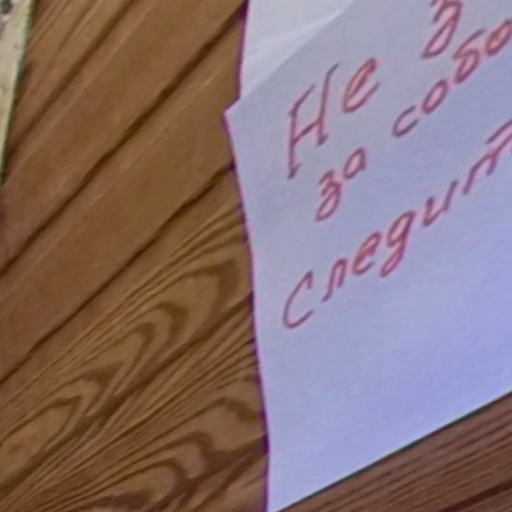 Не з
за собо
следит